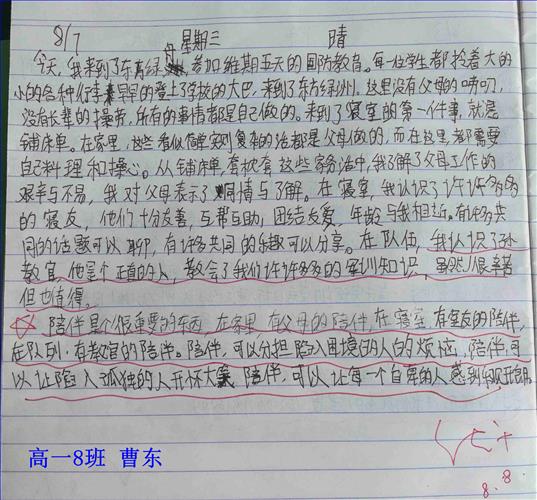 8/7 星期三 晴
今天,我来到了东方绿舟,参加维期五天的国防教育。每一位学生都拎着大的
小的各种行李早早的登上了学校的大巴,来到了东方绿洲。这里没有父母的唠叨,
没有长辈的操劳,所有的事情都是自己做的。来到了寝室的第一件事,就是
铺床单。在家里,这些看似简单实则复杂的活都是父母做的,而在这里,都需要
自己料理和操心。从铺床单,套枕套这些家务活中,我了解了父母工作的
艰辛与不易,我对父母表示了同情与了解。在寝室,我认识了许许多多
的寝友,他们十分友善,互帮互助,团结友爱,年龄与我相近。有许多共
同的话题可以聊,有许多共同的乐趣可以分享。在队伍,我认识了孙
教官,他是个正直的人,教会了我们许许多多的军训知识,虽然很辛苦
但也值得。
陪伴是个很重要的东西,在家里,有父母的陪伴,在寝室,有室友的陪伴,
在队列,有教官的陪伴。陪伴,可以分担陷入困境的人的烦恼,陪伴,可
以让陷入孤独的人开怀大笑,陪伴,可以让每一个自卑的人感到开朗。
高一8班 曹东
8.8